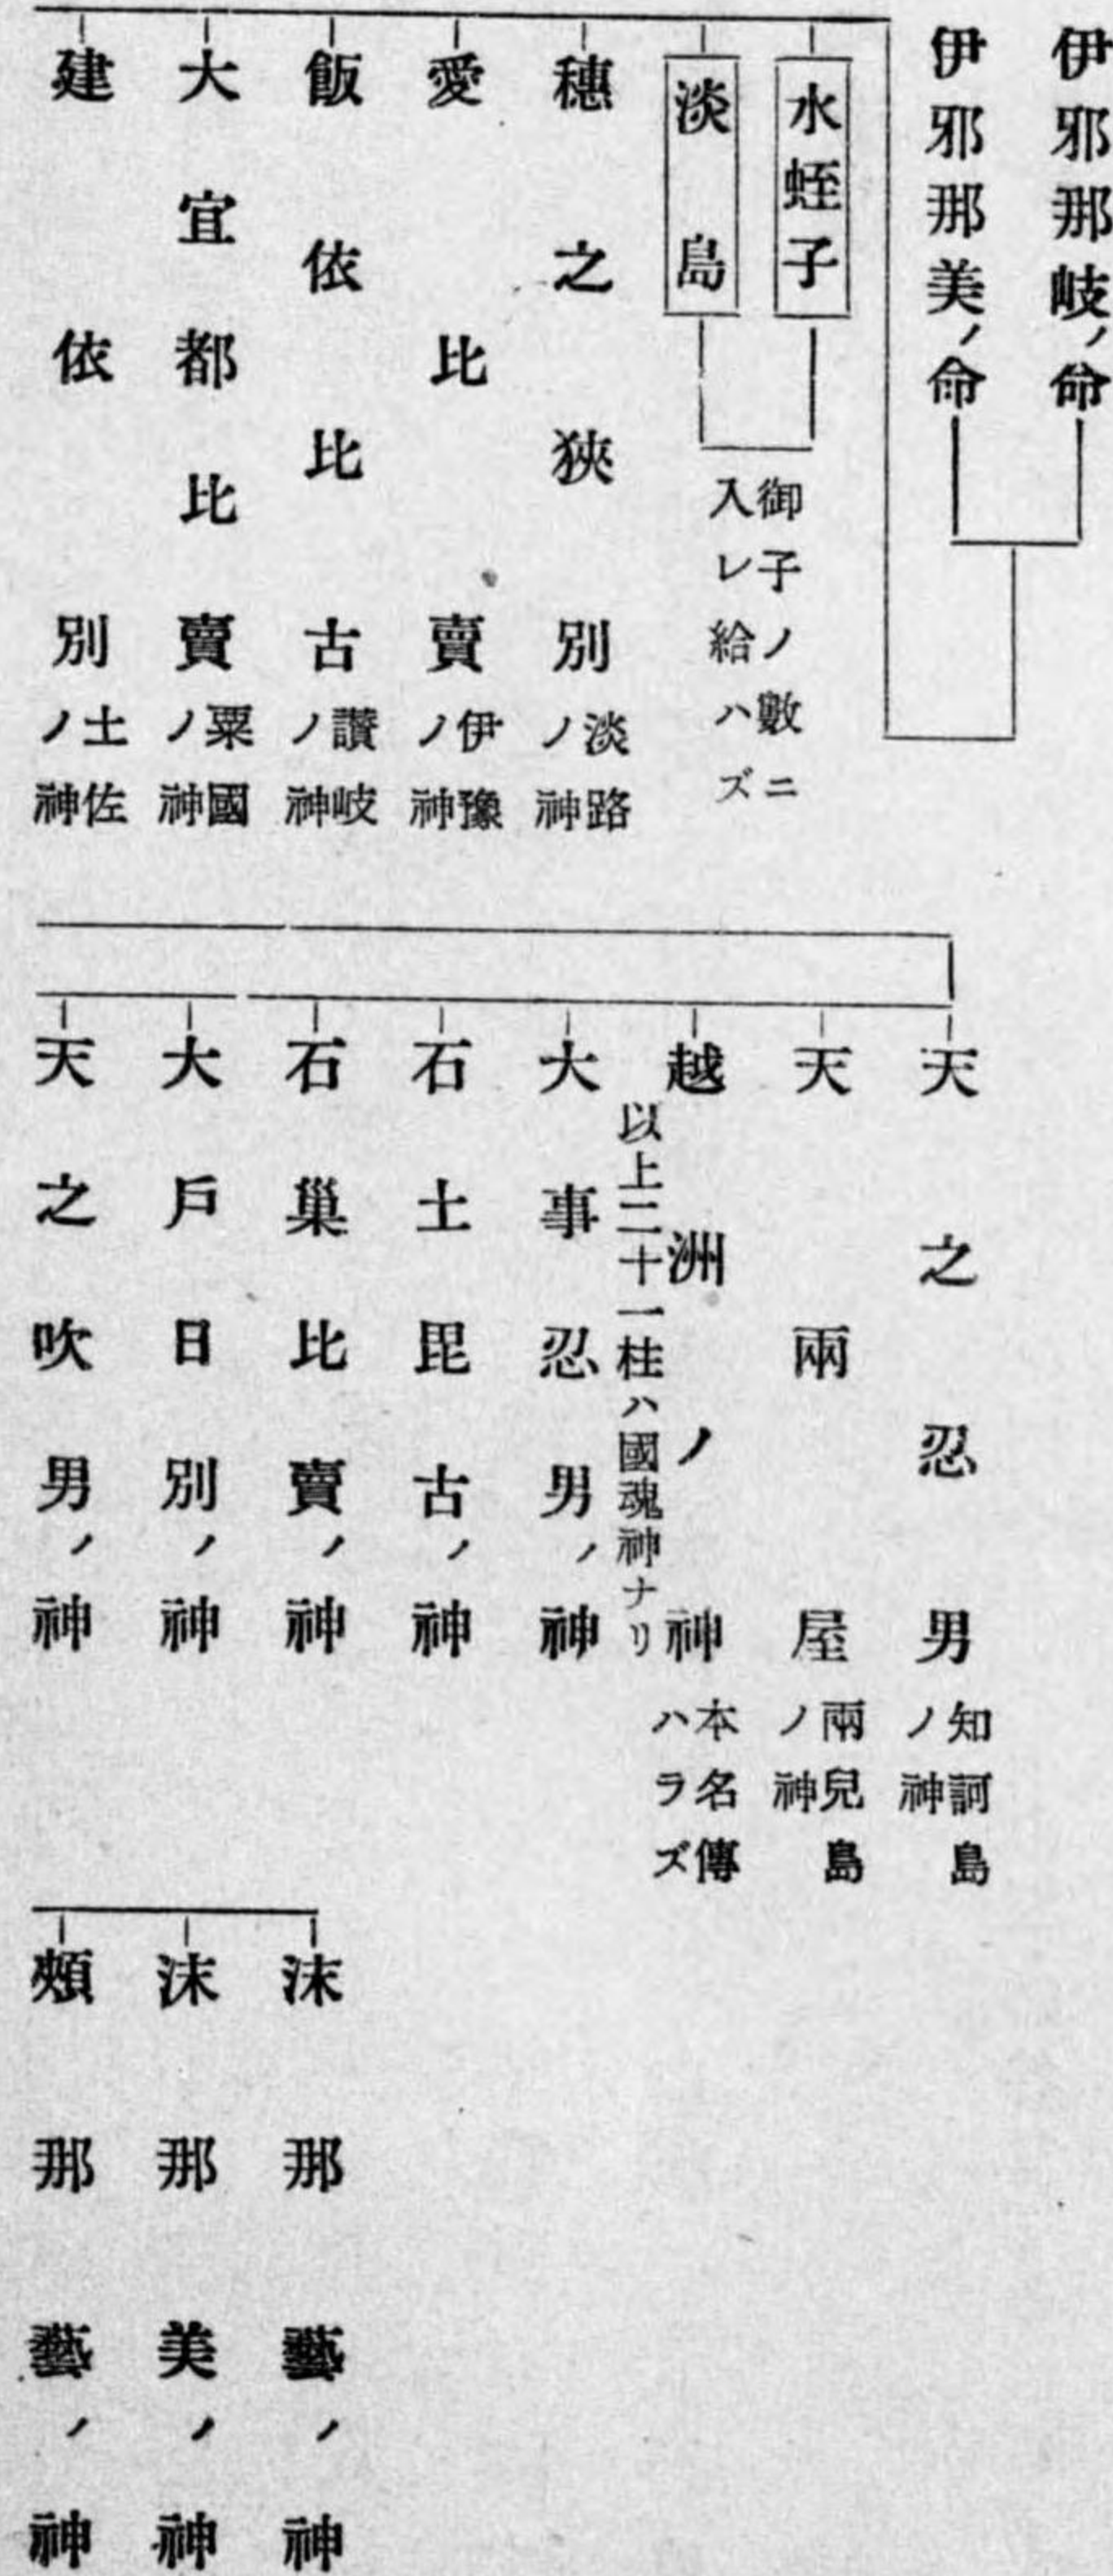 伊邪那岐ノ命
伊邪那美ノ命
水蛭子
淡島
御子ノ數ニ
入レ給ハズ
穗之狹別
淡路
ノ神
愛比賣
伊豫
ノ神
飯依比古
讚岐
ノ神
大宜都比賣
粟國
ノ神
建依別
土佐
ノ神
天之忍男
知訶島
ノ神
天兩屋
兩兒島
ノ神
越洲ノ神
本名傳
ハラズ
以上二十一柱ハ國魂神ナリ
大事忍男ノ神
石土毘古ノ神
石巢比賣ノ神
大戶日別ノ神
天之吹男ノ神
沫那藝ノ神
沫那美ノ神
頰那藝ノ神